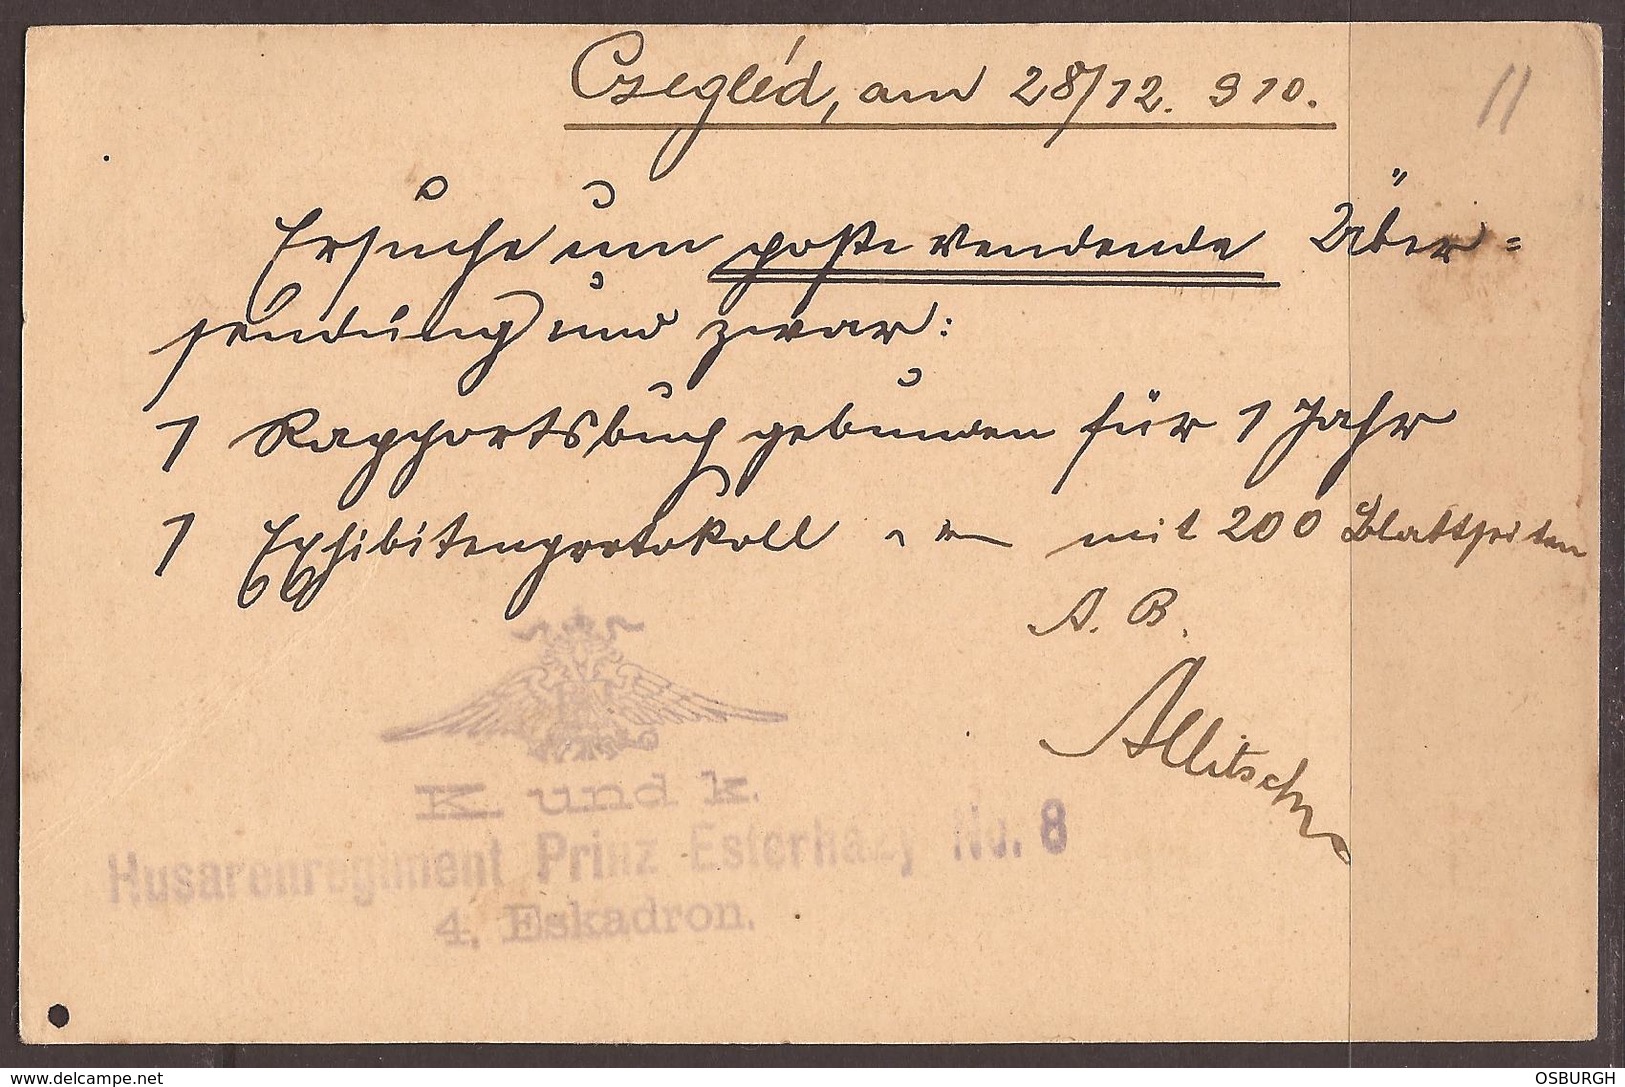 Czegléd, am 28/12. 910.
11
Ersuche um poste wendende Über=
sendung und zwar:
1 Rapportsbuch gebunden für 1 Jahr
1 Exhibitenprotokoll " " mit 200 Blattseiten
A. B.
Allitsch
K. und k.
Husarenregiment Prinz Esterházy No. 8
4. Eskadron.
delcampe.net
OSBURGH